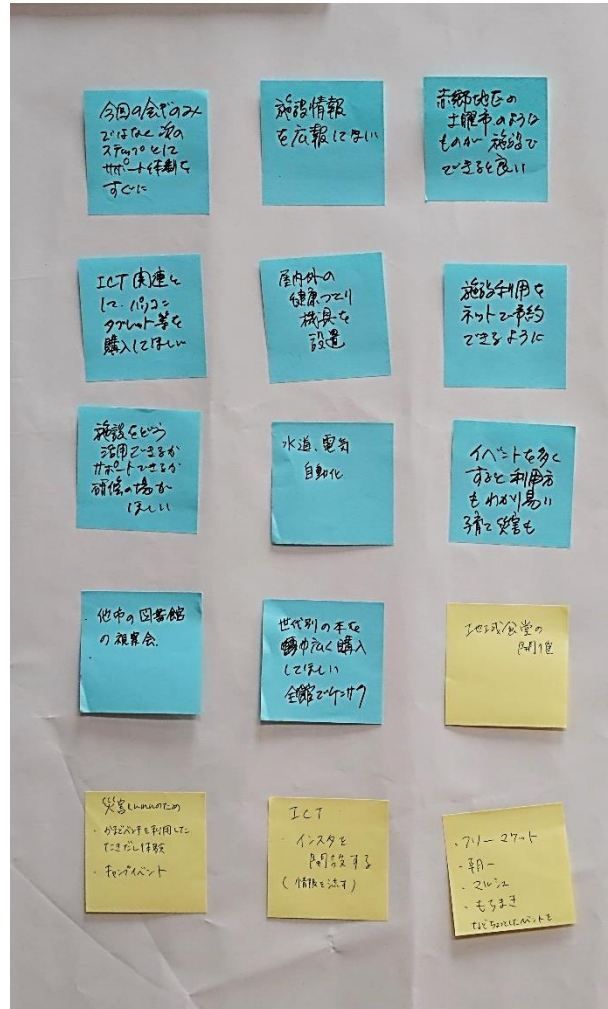 今回の会ぎのみ
ではなく次の
ステップとして
サポート体制を
すぐに
施設情報
を広報してほしい
赤郷地区の
土曜市のような
ものが施設で
できると良い
ICT関連と
して、パソコン
タブレット等を
購入してほしい
屋内外の
健康づくり
機具を
設置
施設利用を
ネットで予約
できるように
施設をどう
活用できるか
サポートできるか
研修の場が
ほしい
水道、電気
自動化
イベントを多く
すると利用方
もわかり易い
子育て災害も
・他市の図書館
の視察会
世代別の本を
幅巾広く購入
してほしい
全館でケンサク
地域食堂の
開催
災害
・かまどベンチを利用した
たきだし体験
・キャンプイベント
ICT
・インスタを
開設する
(情報を流す)
・フリーマケット
・朝一
・マルシェ
・もちまき
などちょっとしたイベントを